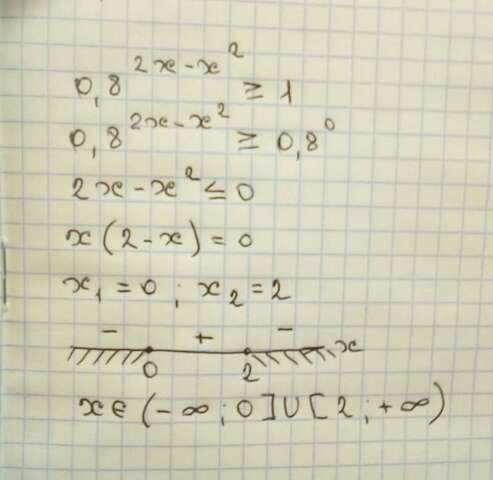 0,8^{2x-x^2} ≥ 1
0,8^{2x-x^2} ≥ 0,8^0
2x - x^2 ≤ 0
x(2-x) = 0
x_1 = 0 ; x_2 = 2
- + -
0 2 x
x ∈ (-∞ ; 0] ∪ [2 ; +∞)